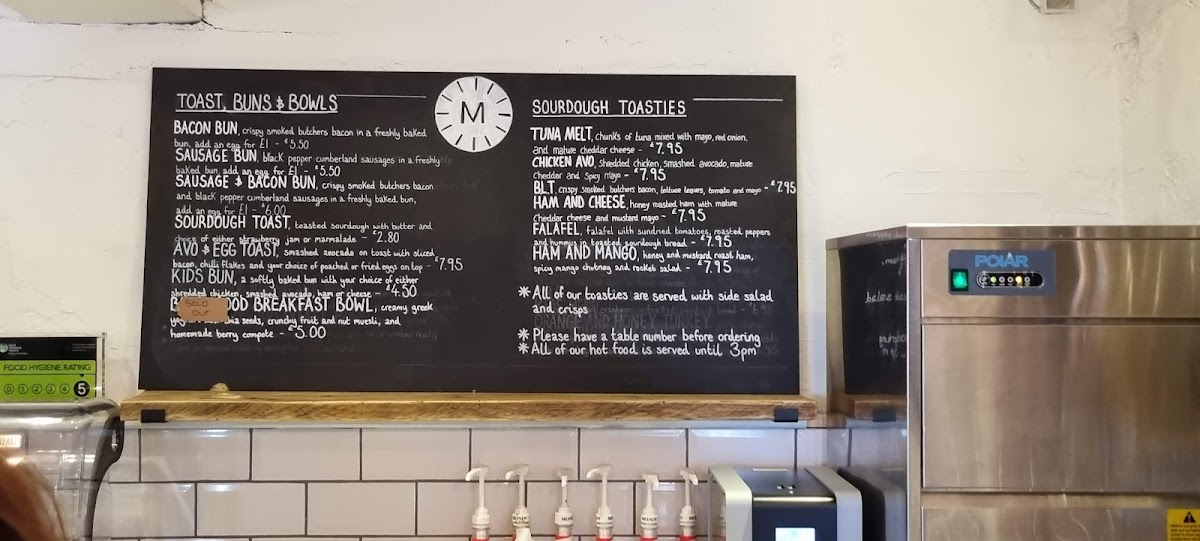 TOAST, BUNS & BOWLS
BACON BUN, crispy smoked butchers bacon in a freshly baked
bun, add an egg for £1 - £5.50
SAUSAGE BUN, black pepper cumberland sausages in a freshly
baked bun, add an egg for £1 - £5.50
SAUSAGE & BACON BUN, crispy smoked butchers bacon
and black pepper cumberland sausages in a freshly baked bun,
add an egg for £1 - £6.00
SOURDOUGH TOAST, toasted sourdough with butter and
choice of either strawberry jam or marmalade - £2.80
AVO & EGG TOAST, smashed avocado on toast with sliced
bacon, chilli flakes and your choice of poached or fried eggs on top - £7.95
KIDS BUN, a softly baked bun with your choice of either
shredded chicken, smashed avocado, ham or cheese - £4.50
BREAKFAST BOWL, creamy greek
seeds, crunchy fruit and nut muesli, and
homemade berry compote - £5.00
SOLD
OUT
M
SOURDOUGH TOASTIES
TUNA MELT, chunks of tuna mixed with mayo, red onion,
and mature cheddar cheese - £7.95
CHICKEN AVO, shredded chicken, smashed avocado, mature
Chedder and spicy mayo - £7.95
BLT, crispy smoked butchers bacon, lettuce leaves, tomato and mayo - £7.95
HAM AND CHEESE, honey roasted ham with mature
Cheddar cheese and mustard mayo - £7.95
FALAFEL, falafel with sundried tomatoes, roasted peppers
and hummus in toasted sourdough bread - £7.95
HAM AND MANGO, honey and mustard roast ham,
spicy mango chutney and rocket salad - £7.95
* All of our toasties are served with side salad
and crisps
* Please have a table number before ordering
* All of our hot food is served until 3pm
FOOD HYGIENE RATING
0 1 2 3 4 5
POLAR
MONIN